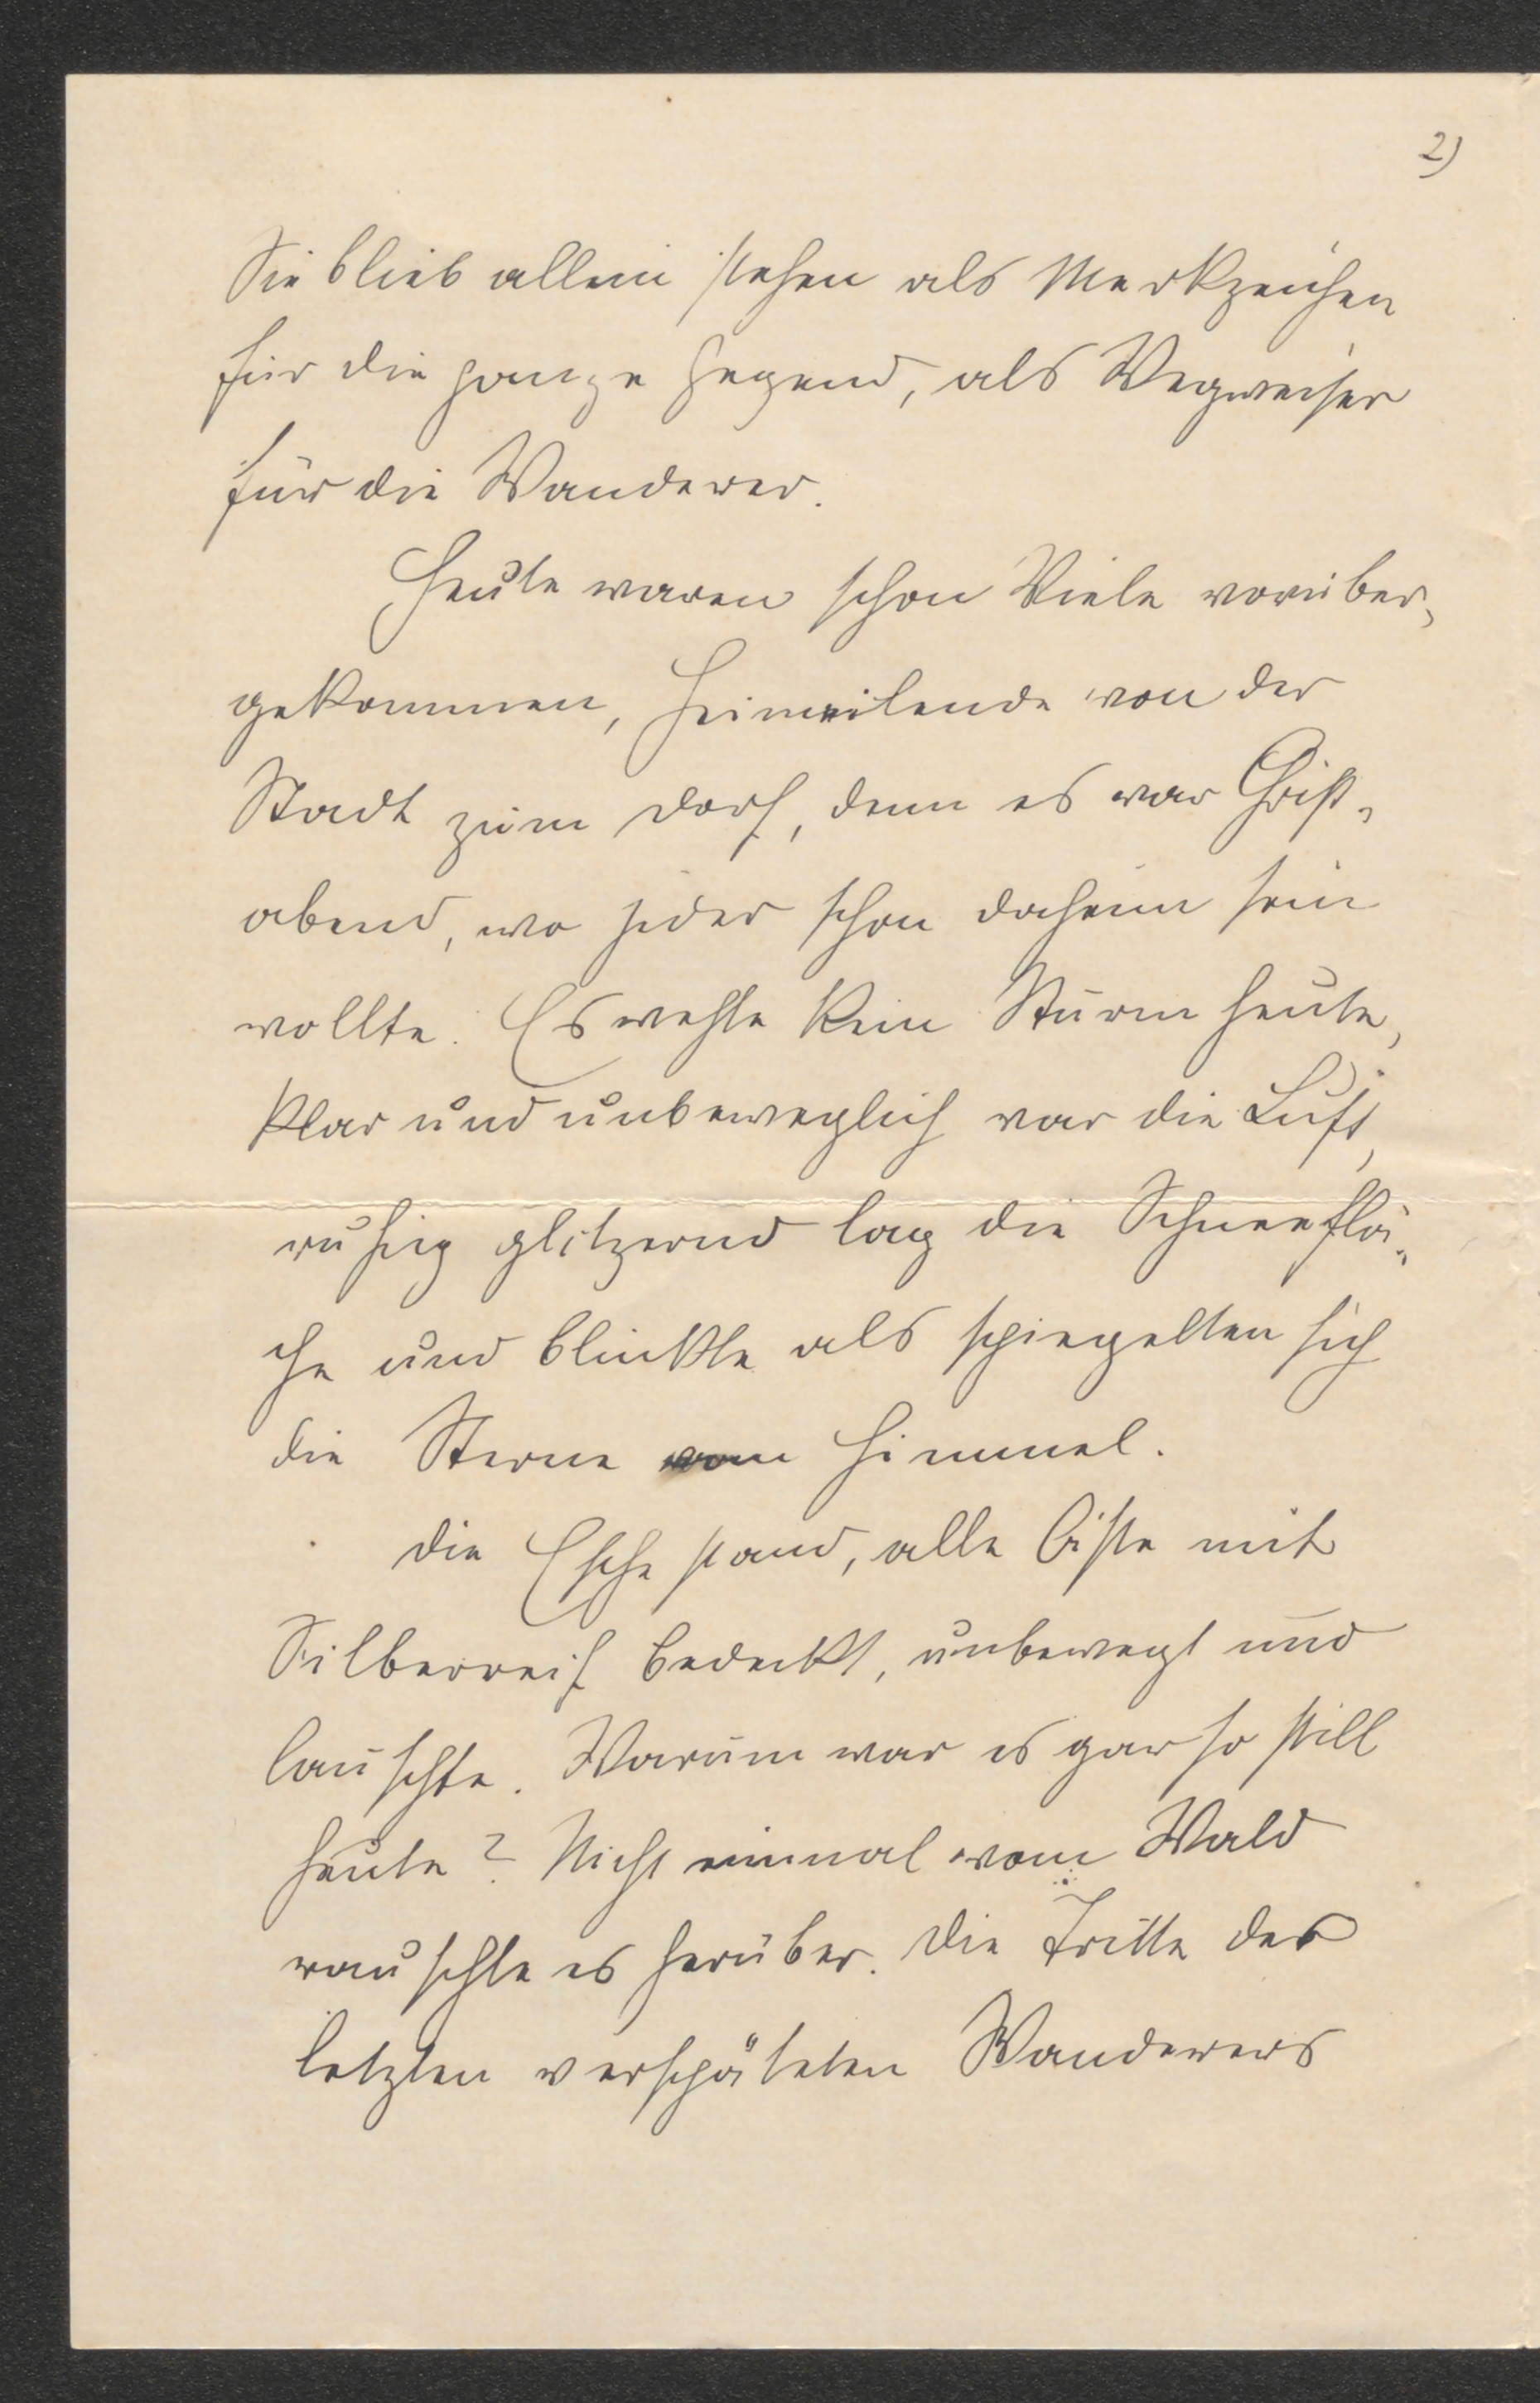 2)
Sie blieb allein stehen als Merkzeichen
für die ganze Gegend, als Wegweiser
für die Wanderer.
Heute waren schon Viele vorüber-
gekommen, Heimeilende von der
Stadt zum Dorf, denn es war Christ-
abend, wo jeder schon daheim sein
wollte. Es wehte kein Sturm heute,
klar und unbeweglich war die Luft,
ruhig glitzernd lag die Schneeflä-
che und blinkte als spiegelten sich
die Sterne vom Himmel.
Die Esche stand, alle Äste mit
Silberreif bedeckt, unbewegt und
lauschte. Warum war es gar so still
heute? Nicht einmal vom Wald
rauschte es herüber. Die Tritte des
letzten verspäteten Wanderers